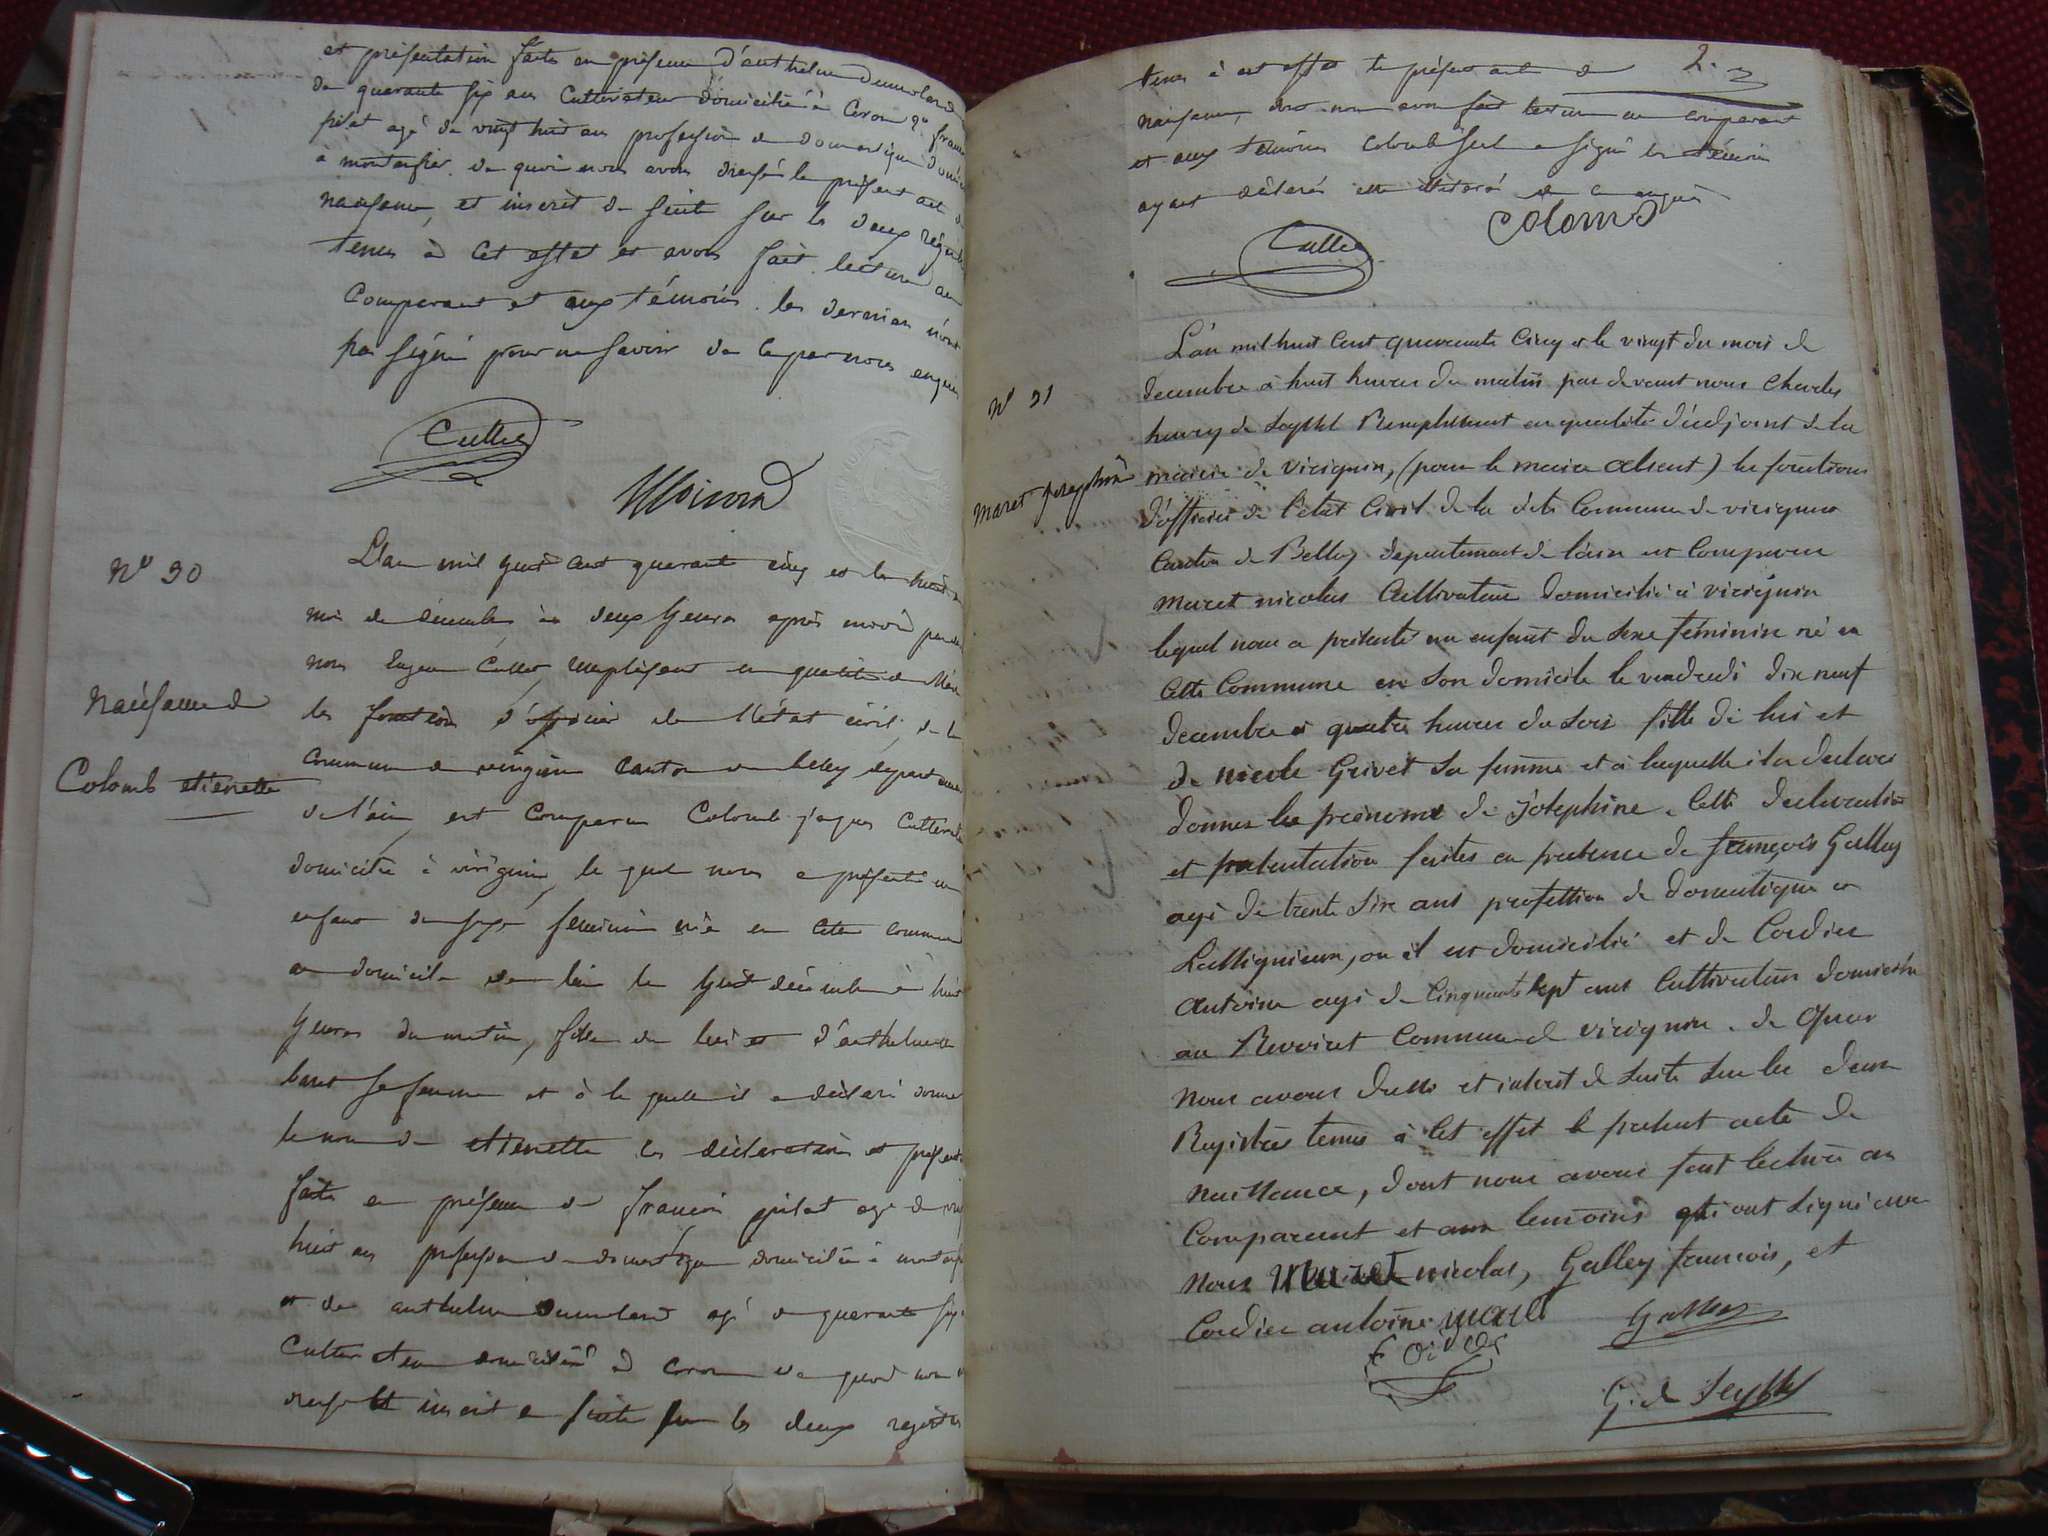 et présentation faite en présence d'anthelme Dumoland
de quarante six ans Cultivateur domicilié à Coron & fran
pilat agé de vingt huit ans profession de domestique domi
à montarfier de quoi nous avons dressé le présent acte de
naissance, et inscrit de suite sur les deux régistres
tenus à cet effet et avons fait lecture au
Comparant et aux témoins. les derniers n'ont
pas signé pour ne savoir de ce par nous enquis
Cullet
N° 30
naissance de
Colomb etienette
L'an mil huit cent quarante cinq et le huit du
mois de décembre à deux heures après midi par devant
nous Eugene Cullet remplissant en qualité de Maire
les fonctions d'officier de l'état civil de la
Commune de virignin Canton de belley département
de l'ain, est Comparu Colomb jaques Cultivateur
domicilié à virignin, le quel nous a présenté un
enfant du sexe féminin née en cette commune
au domicile de lui le huit décembre à huit
heures du matin, fille de lui et d'anthelmette
sa femme et à la quelle il a déclaré donner
le nom de etienette les déclaration et présentation
faite en présence de francois pilat agé de vingt
huit ans profession de domestique domicilié à
et de anthelme Dumoland agé de quarante six
Cultivateur domicilié à Coron de quoi nous
dressé et inscrit de suite sur les deux registres
2.
tenus à cet effet le présent acte de
naissance, dont nous avons fait lecture au comparant
et aux témoins Colomb seul a signé les témoins
ayant déclarés être illitérés de ce enquis
Colomb
Cullet
N° 31
Maret Josephine
L'an mil huit Cent quarante Cinq et le vingt du mois de
decembre à huit heures du matin par devant nous Charles
henry de Seyssel Remplissant en qualité d'adjoint de la
mairie de virignin, (pour le maire absent) les fonctions
d'officier de l'état Civil de la dite Commune de virignin
Canton de Belley departement de l'ain est Comparu
Maret nicolas Cultivateur domicilié à virignin
lequel nous a présenté un enfant du sexe féminin né en
Cette Commune en son domicile le vendredi dix neuf
decembre à quatre heures du soir fille de lui et
de nicole Grivet sa femme et à laquelle il a declaré
donner le prénoms de Josephine. Cette declaration
et présentation faites en présence de françois Galley
agé de trente six ans profession de domestique a
Lassignieu, ou il est domicilié et de Cordier
Antoine agé de Cinquante sept ans Cultivateur domicilié
au Revoiret Commune de virignin. de quoi
nous avons dressé et inscrit de suite sur les deux
Registres tenus à Cet effet le présent acte de
naissance, dont nous avons fait lecture au
Comparant et aux temoins qui ont signé avec
nous Maret nicolas, Galley francois, et
Cordier antoine. maret
Galley
Cordier
G. de Seyssel